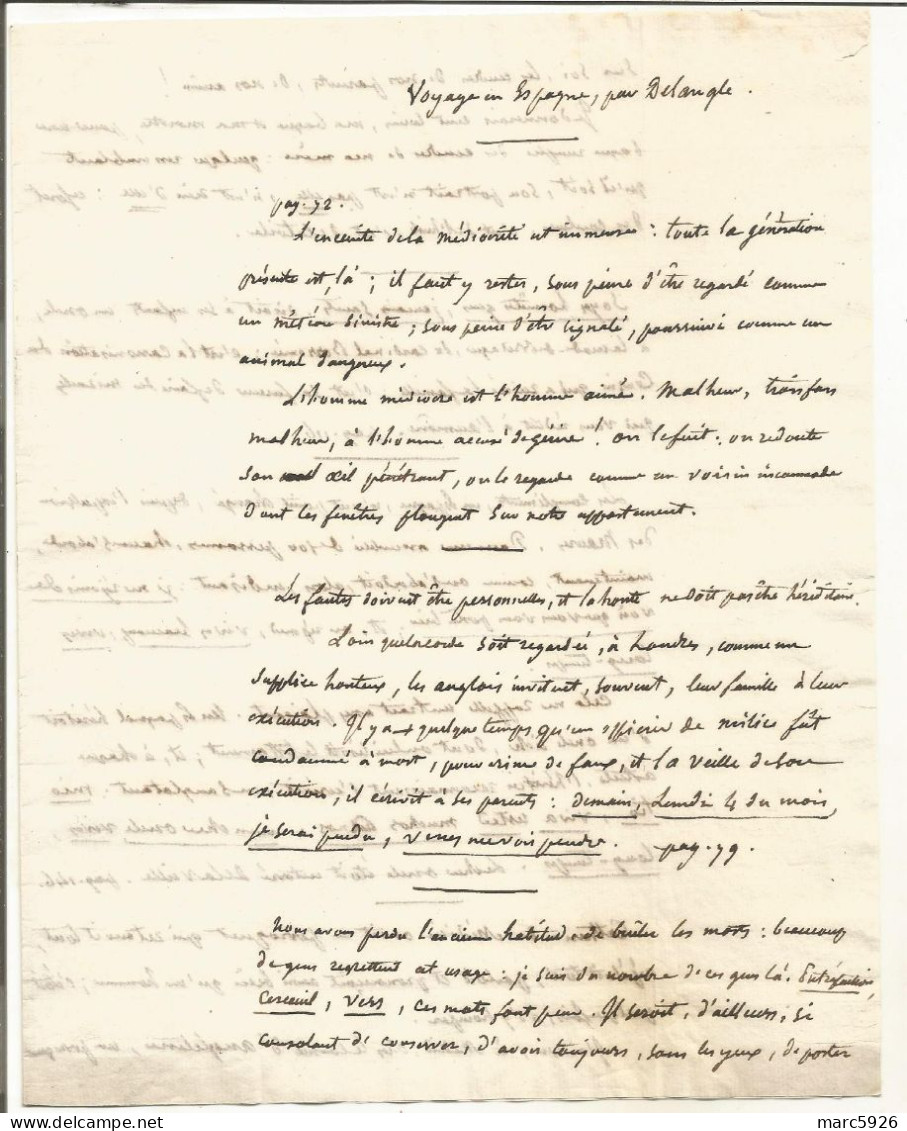 Voyage en Espagne, par Delangle.
pag. 72.
L'enceinte de la médiocrité est immense : toute la génération
présente est là ; il faut y rester, sous peine d'être regardé comme
un météore sinistre ; sous peine d'être signalé, poursuivi comme un
animal dangereux.
L'homme médiocre est l'homme aimé. Malheur, trois fois
malheur, à l'homme accusé de génie ! on le fuit : on redoute
son œil pénétrant, on le regarde comme un voisin incommode
dont les fenêtres plongent sur notre appartement.
Les fautes doivent être personnelles, et la honte ne doit pas être héréditaire.
Loin que la corde soit regardée, à Londres, comme un
supplice honteux, les anglois invitent, souvent, leur famille à leur
exécution. Il y a quelque temps qu'un officier de milice fût
condamné à mort, pour crime de faux, et la veille de son
exécution, il écrivit à ses parents : demain, Lundi 4 du mois,
je serai pendu, venez me voir pendre. pag. 79.
Nous avons perdu l'ancienne habitude de brûler les morts : beaucoup
de gens regrettent cet usage : je suis du nombre de ces gens là. Putréfaction,
Cercueil, Vers, ces mots font peur. Il seroit, d'ailleurs, si
consolant de conserver, d'avoir toujours, sous les yeux, de porter
marc5926